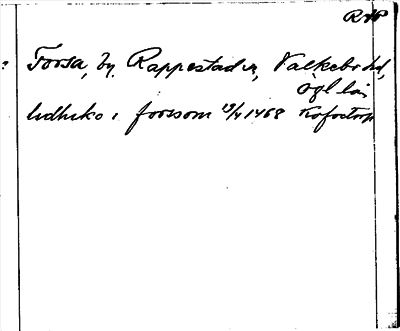 RAP
Forsa, by, Rappestad sn, Valkebo hd,
Ögl län
lidheko i forssom 13/4 1468 Kofsetorp